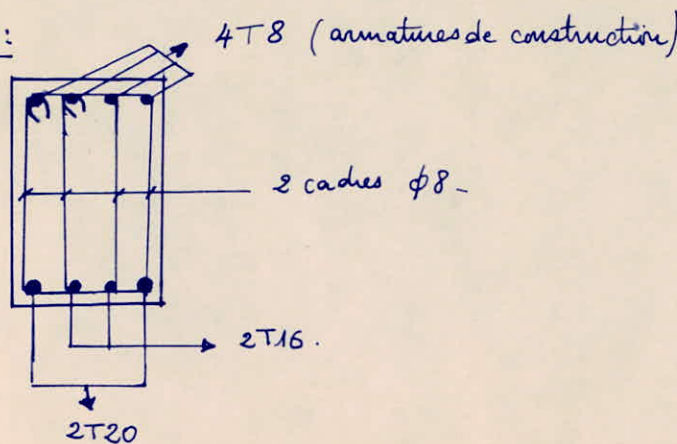 :
4T8 (armatures de construction)
2 cadres ϕ8-
2T16.
2T20